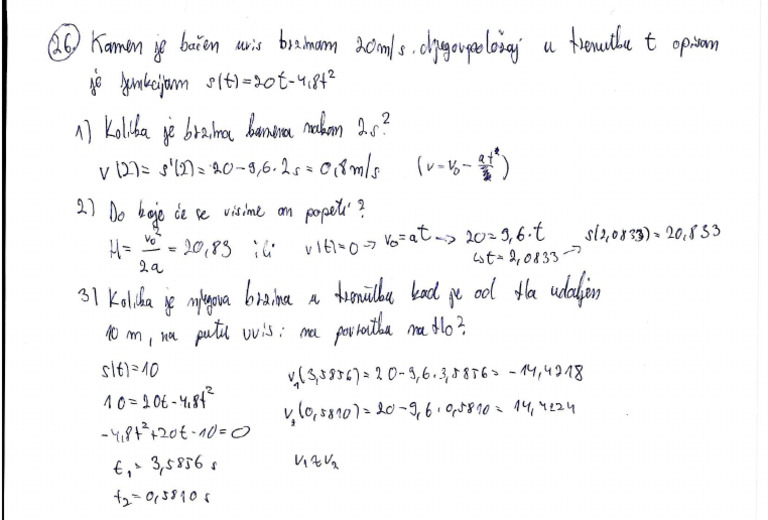 26. Kamen je bačen uvis brzinom 20m/s. Njegov položaj u trenutku t opisan
je funkcijom s(t)=20t-4,8t²
1) Kolika je brzina kamena nakon 2s?
v(2)= s'(2)= 20-9,6·2s = 0,8m/s (v=v₀-at)
2) Do koje će se visine on popeti?
H= v₀²/2a = 20,83 ili v(t)=0 → v₀=at → 20=9,6·t s(2,0833)=20,833
↳t=2,0833 →
3) Kolika je njegova brzina u trenutku kad je od tla udaljen
10 m, na putu uvis i na povratku na tlo?
s(t)=10 v₁(3,5856)=20-9,6·3,5856= -14,4218
10=20t-4,8t² v₂(0,5810)=20-9,6·0,5810= 14,4224
-4,8t²+20t-10=0
t₁= 3,5856 s v₁≈v₂
t₂=0,5810 s